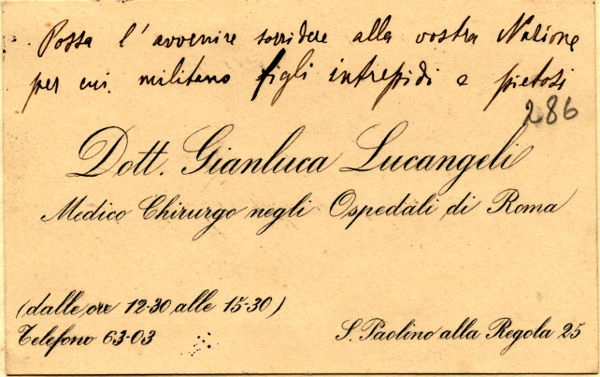 Possa l'avvenire sorridere alla vostra Nazione
per cui militano figli intrepidi e pietosi
286
Dott. Gianluca Lucangeli
Medico Chirurgo negli Ospedali di Roma
(dalle ore 12-30 alle 15-30)
Telefono 63-03
S. Paolino alla Regola 25